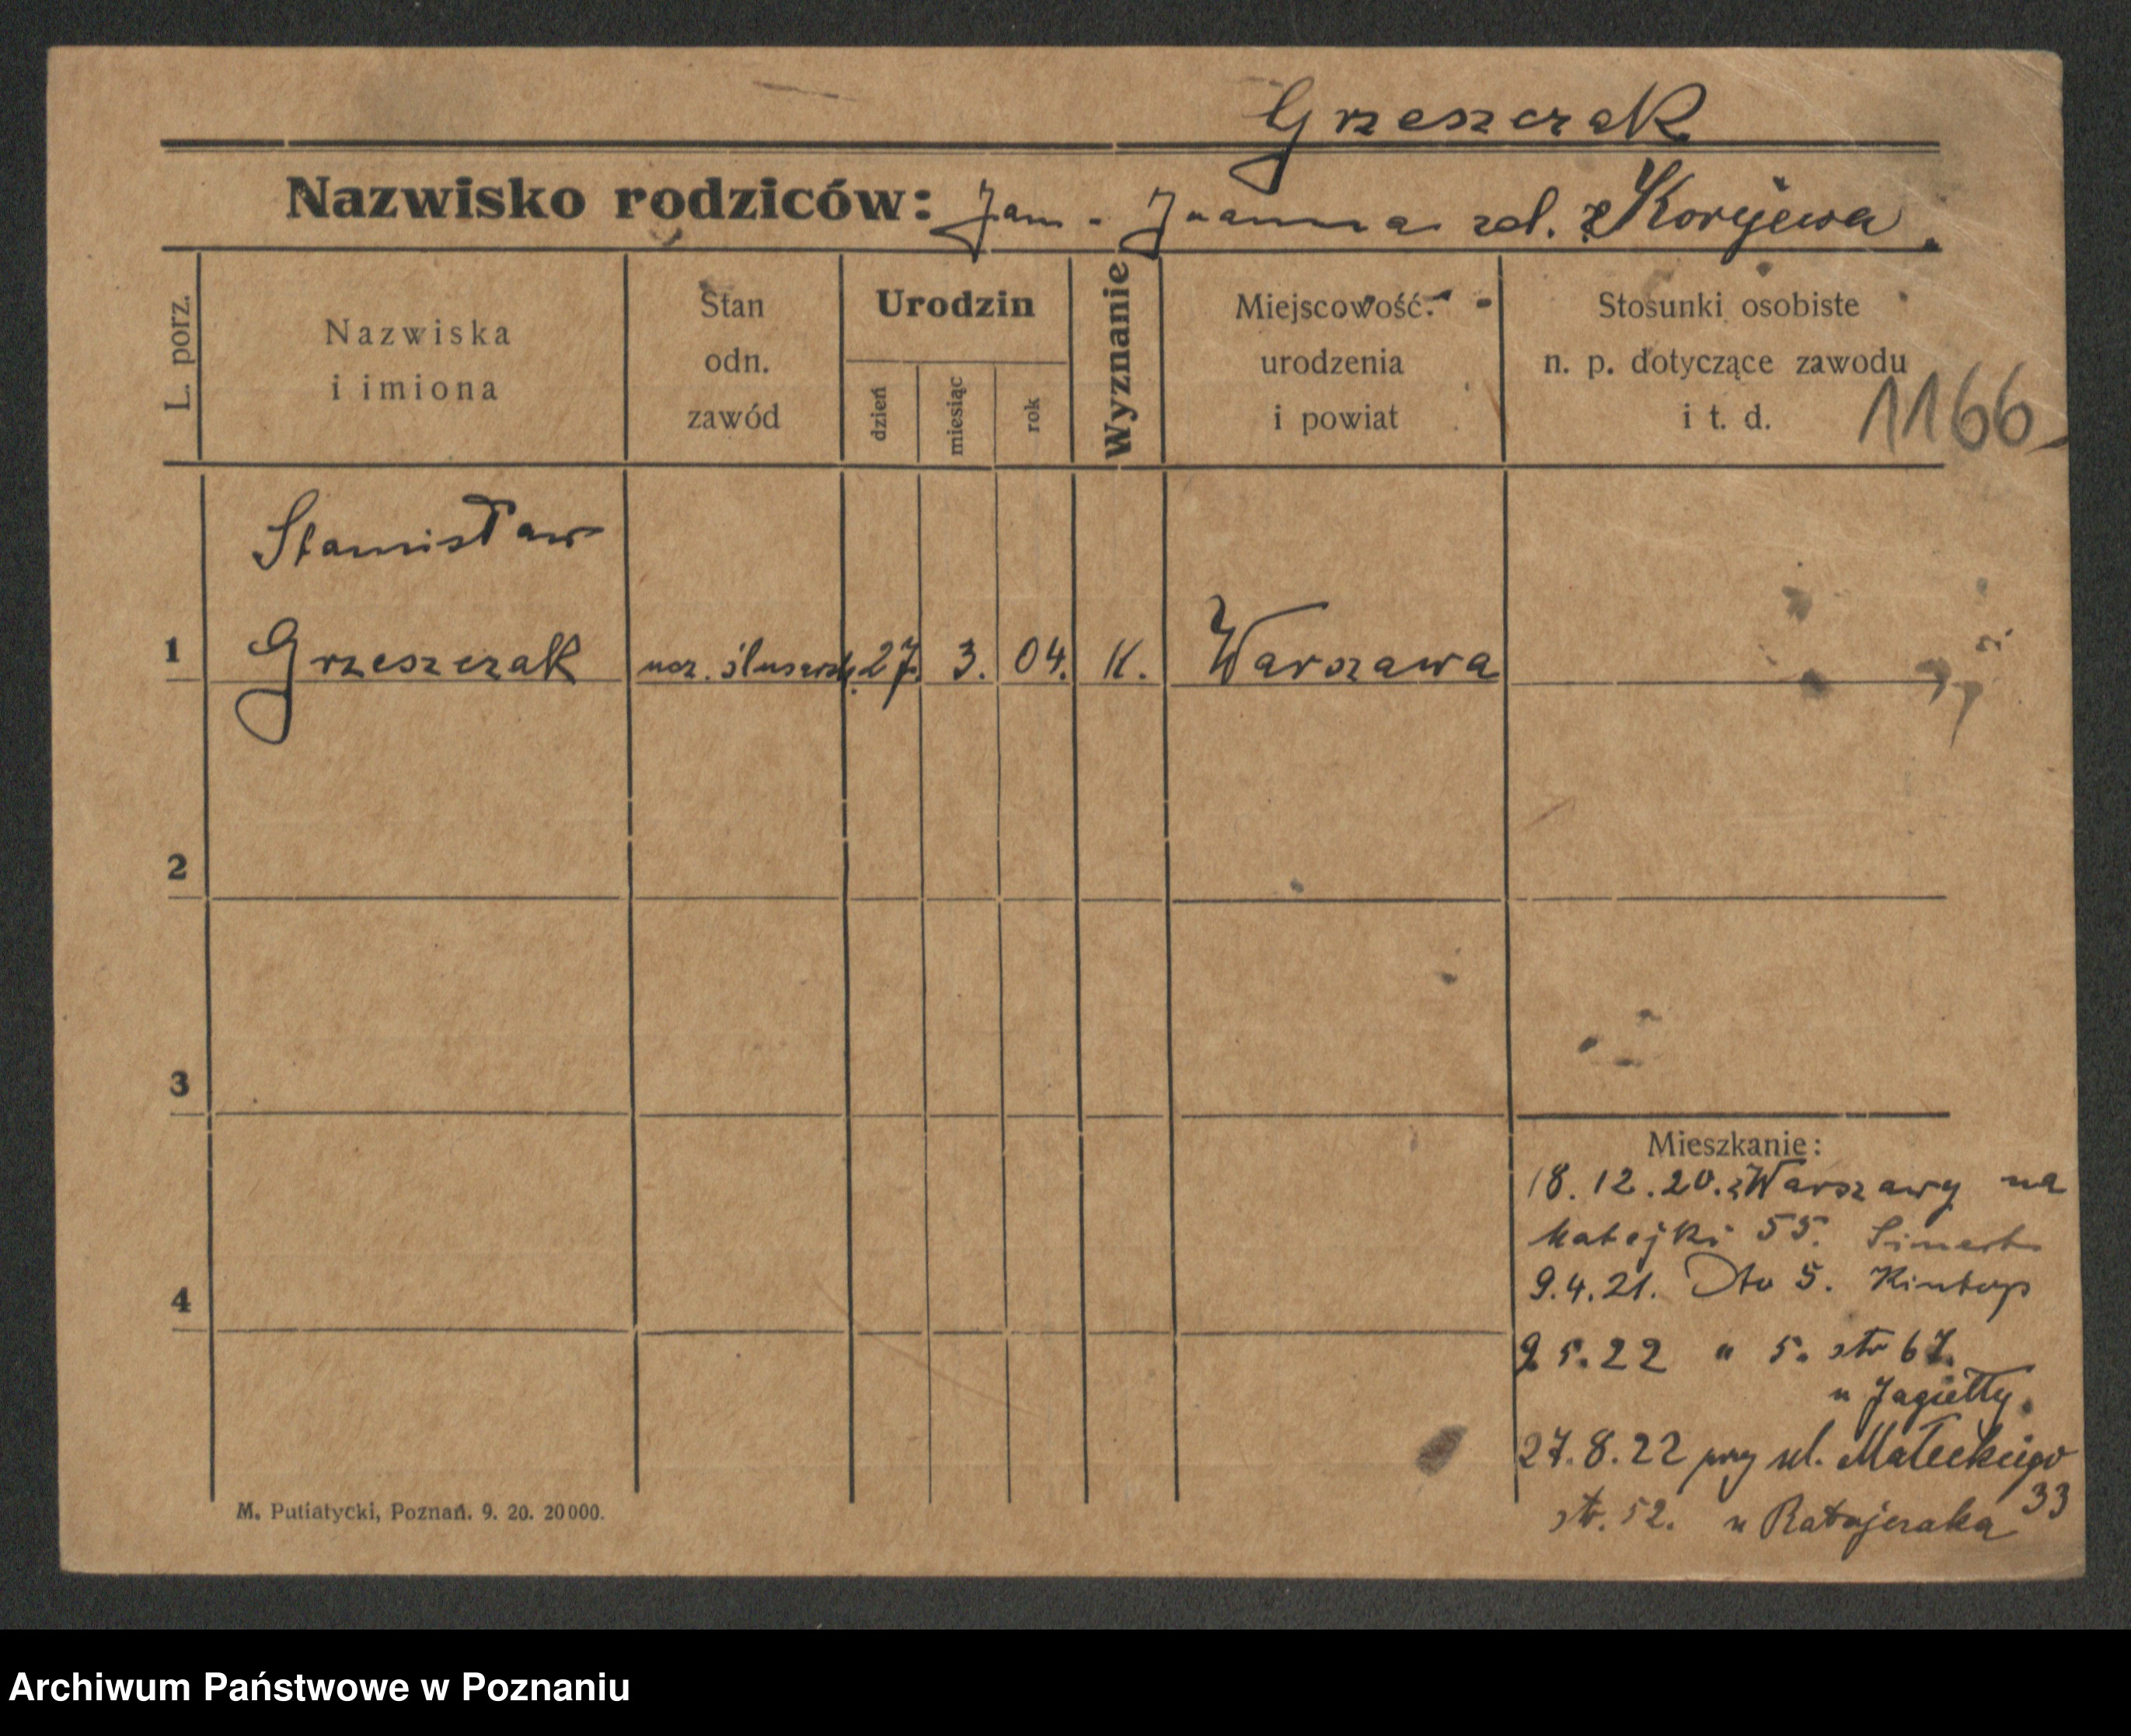 Grzeszczak
Nazwisko rodziców: Jan - Joanna zd. z Koryjewa.
L. porz.
Nazwiska
i imiona
Stan
odn.
zawód
Urodzin
dzień
miesiąc
rok
Wyznanie
Miejscowość
urodzenia
i powiat
Stosunki osobiste
n. p. dotyczące zawodu
i t. d.
1166
Stanisław
1 Grzeszczak ucz. ślusarsk. 27. 3. 04. K. Warszawa
2
3
Mieszkanie:
18.12.20. z Warszawy na
Matejki 55.
9.4.21. Dto 5. Kintop
4
2 5.22 " 5. str 67.
u Jagiełły.
27.8.22 przy ul. Małeckiego
33
str. 52. u Ratajczaka
M. Putiatycki, Poznań. 9. 20. 20000.
Archiwum Państwowe w Poznaniu